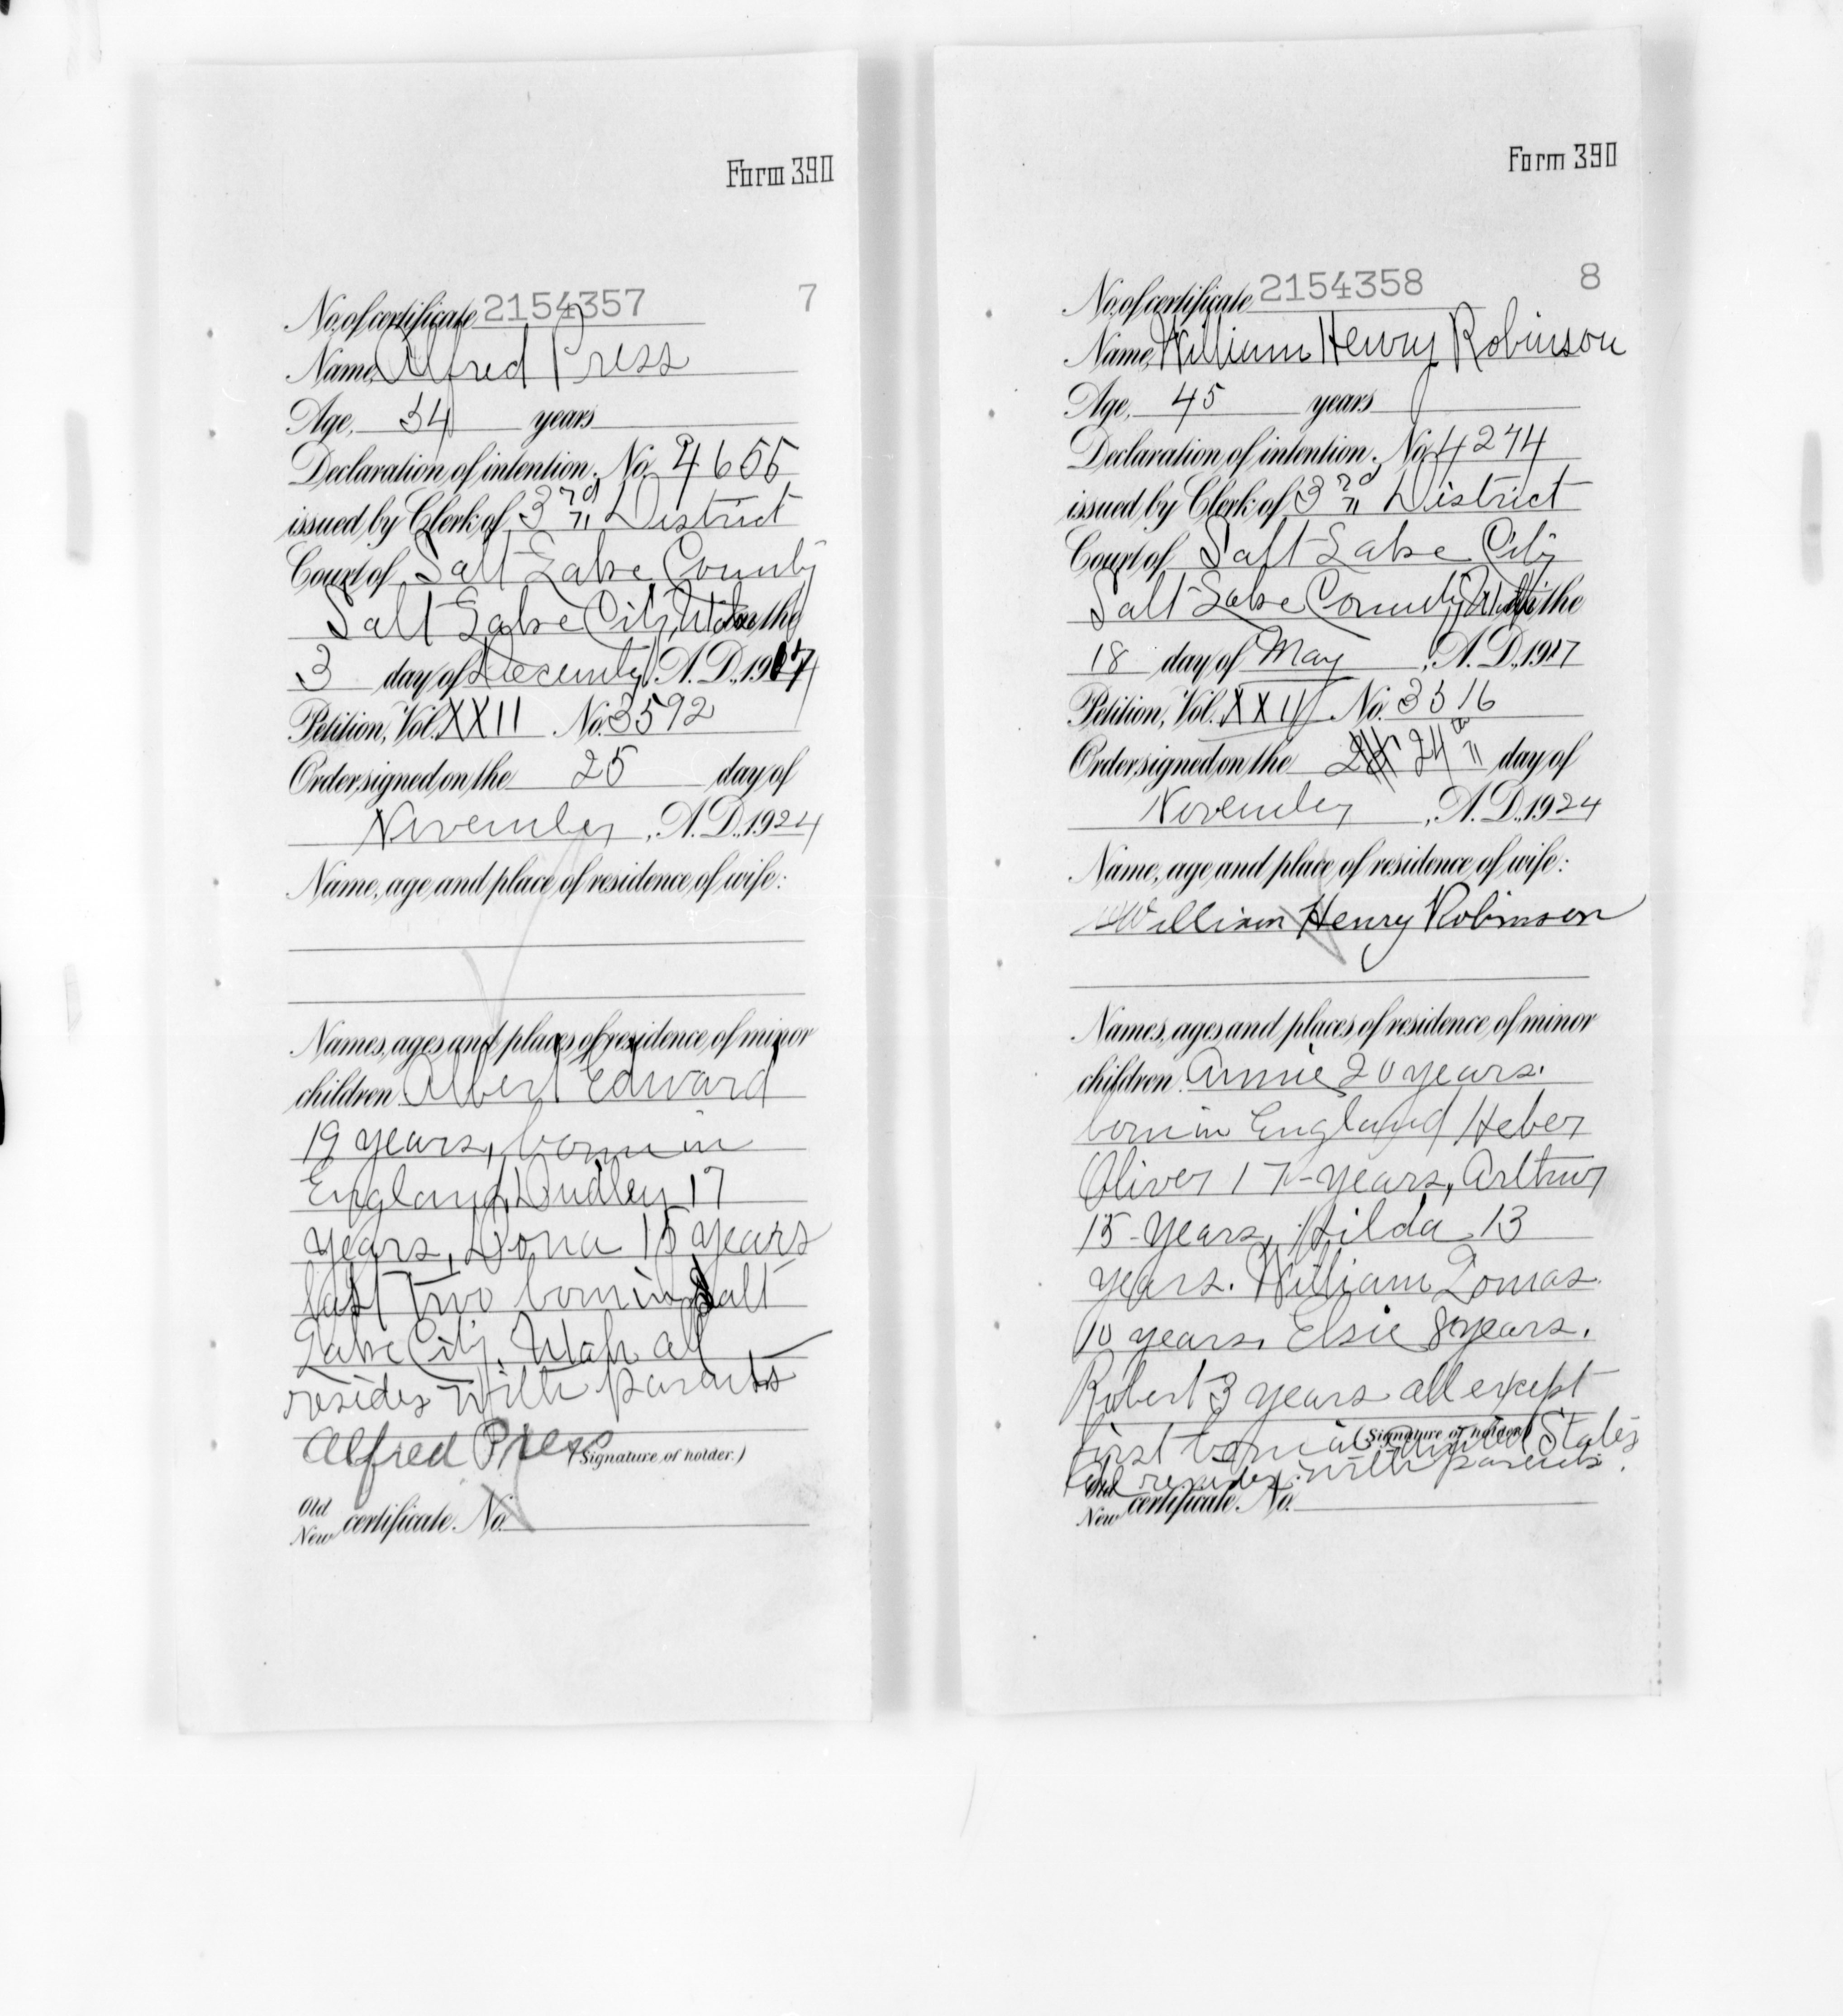 Form 390
7
No. of certificate 2154357
Name, Alfred Press
Age, 34 years
Declaration of intention. No. 4655
issued by Clerk of 3rd District
Court of Salt Lake County
Salt Lake City, Utah on the
3 day of December, A.D., 1917
Petition, Vol. XXII No. 3592
Order signed on the 25 day of
November, A.D., 1924
Name, age and place of residence of wife:
Names, ages and places of residence of minor
children Albert Edward
19 years, born in
England, Dudley 17
years, Dona 15 years
last two born in Salt
Lake City, Utah all
resides with parents
Alfred Press
(Signature of holder.)
Old
New certificate. No.
Form 390
8
No. of certificate 2154358
Name, William Henry Robinson
Age, 45 years
Declaration of intention. No. 4274
issued by Clerk of 3rd District
Court of Salt Lake City
Salt Lake County, the
18 day of May, A.D., 1917
Petition, Vol. XXII No. 3516
Order signed on the 24th day of
November, A.D., 1924
Name, age and place of residence of wife:
William Henry Robinson
Names, ages and places of residence of minor
children. Annie 20 years.
born in England Heber
Oliver 17-years, Arthur
15-years, Hilda 13
years. William Tomas
10 years, Elsie 8 years.
Robert 3 years all except
first born in United States
(Signature of holder.)
all resides with parents.
Old
New certificate. No.